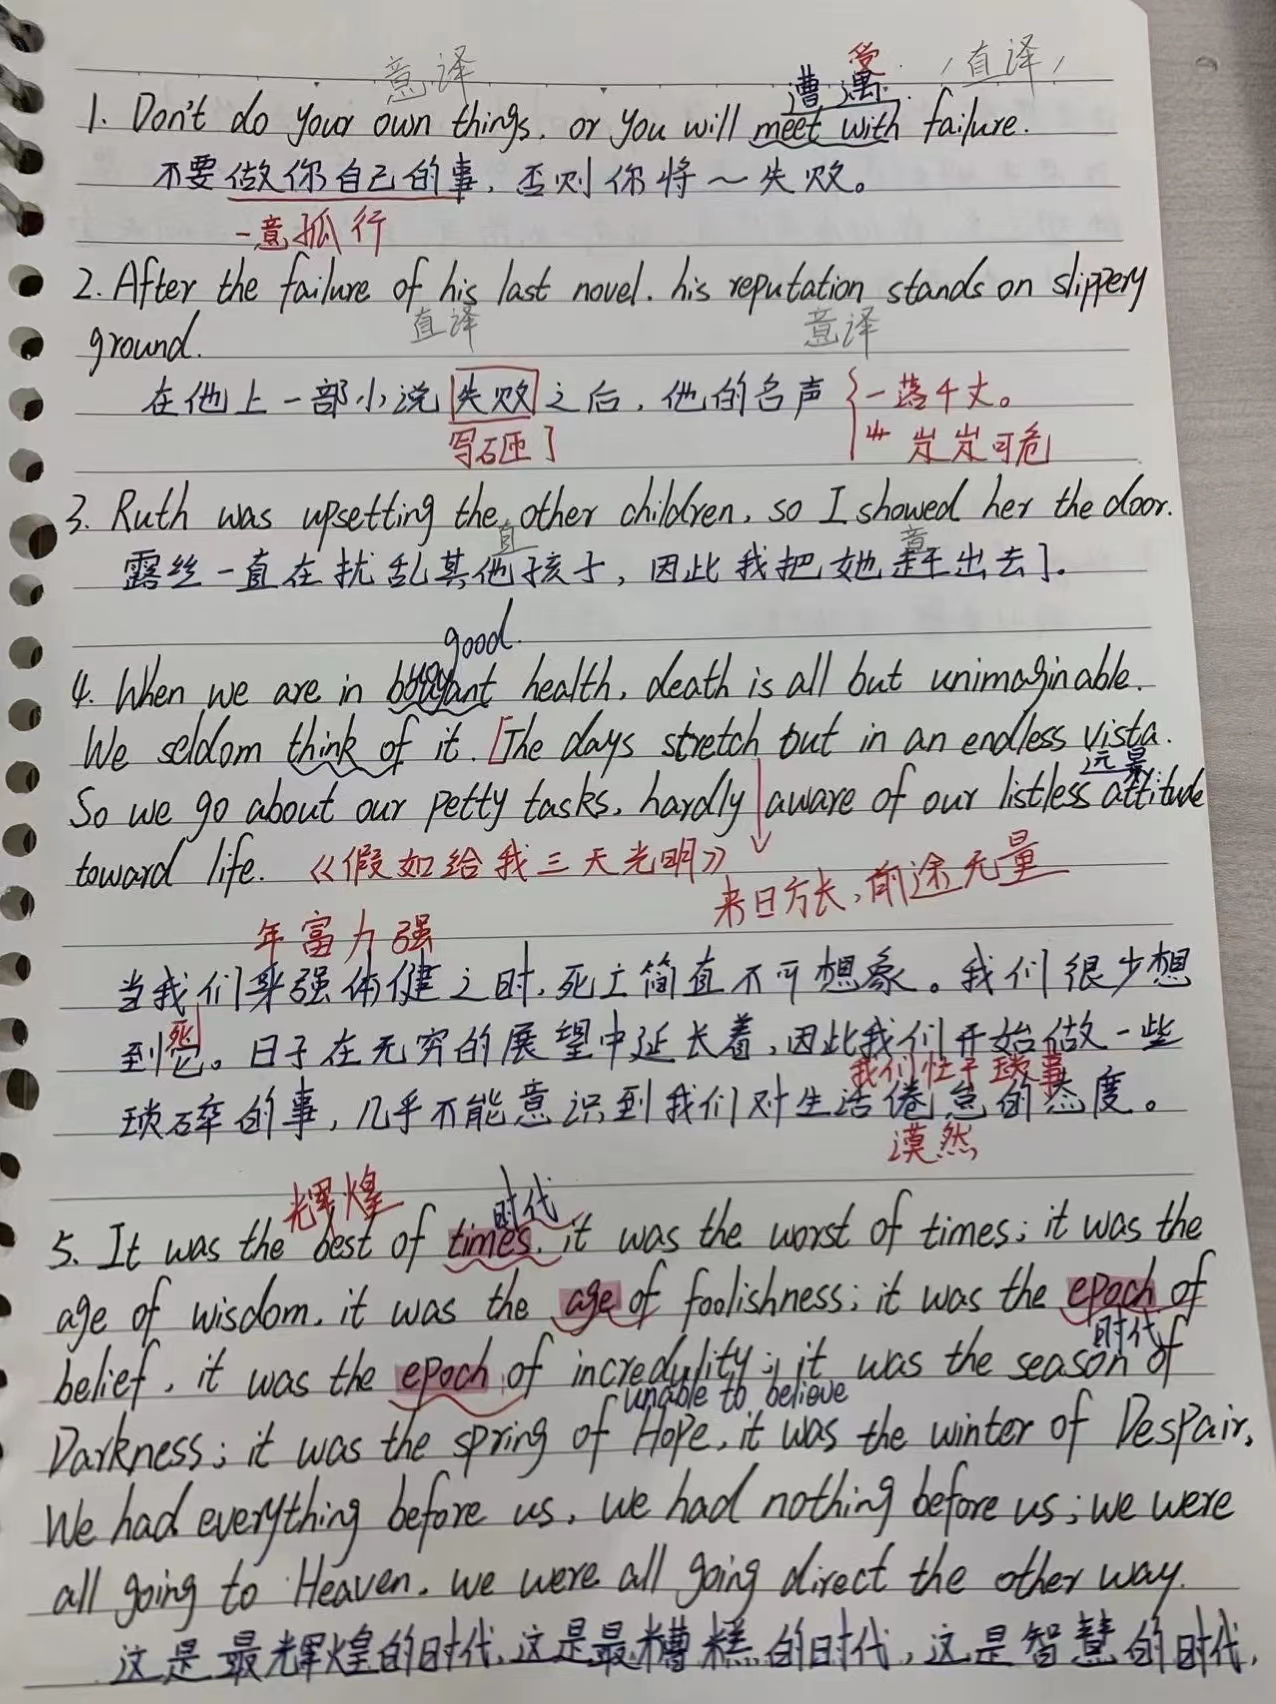 意译 受 (直译)
遭遇
1. Don't do your own things, or you will meet with failure.
不要做你自己的事, 否则你将~失败。
一意孤行
2. After the failure of his last novel. his reputation stands on slippery
直译 意译
ground.
在他上一部小说失败之后, 他的名声 一落千丈。
写砸了 岌岌可危
3. Ruth was upsetting the other children, so I showed her the door.
直 意
露丝一直在扰乱其他孩子, 因此我把她赶出去了.
good.
4. When we are in buoyant health, death is all but unimaginable.
We seldom think of it. [The days stretch out in an endless vista.
远景
So we go about our petty tasks, hardly aware of our listless attitude
toward life. 《假如给我三天光明》
来日方长, 前途无量
年富力强
当我们身强体健之时, 死亡简直不可想象。我们很少想
死
到它。日子在无穷的展望中延长着, 因此我们开始做一些
我们忙于琐事
琐碎的事, 几乎不能意识到我们对生活倦怠的态度。
漠然
辉煌 时代
5. It was the best of times, it was the worst of times; it was the
age of wisdom. it was the age of foolishness; it was the epoch of
时代
belief, it was the epoch of incredulity; it was the season of
unable to believe
Darkness; it was the spring of Hope, it was the winter of Despair,
We had everything before us, we had nothing before us; we were
all going to Heaven, we were all going direct the other way.
这是最辉煌的时代, 这是最糟糕的时代, 这是智慧的时代,